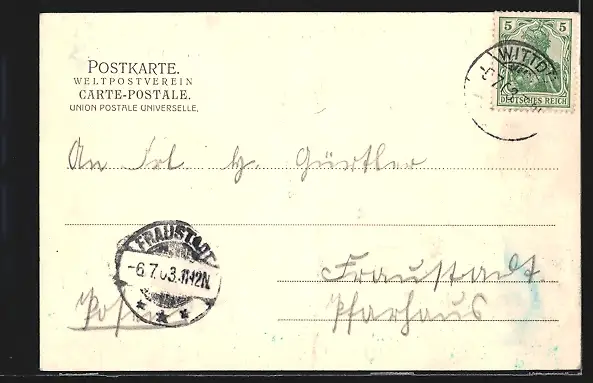 5 5
WITTD
DEUTSCHES REICH
POSTKARTE.
WELTPOSTVEREIN
CARTE-POSTALE.
UNION POSTALE UNIVERSELLE.
An Frl H. Gürtler
FRAUSTADT
-6.7.03.11-12N.
Fraustadt.
Pfarhaus
Posen